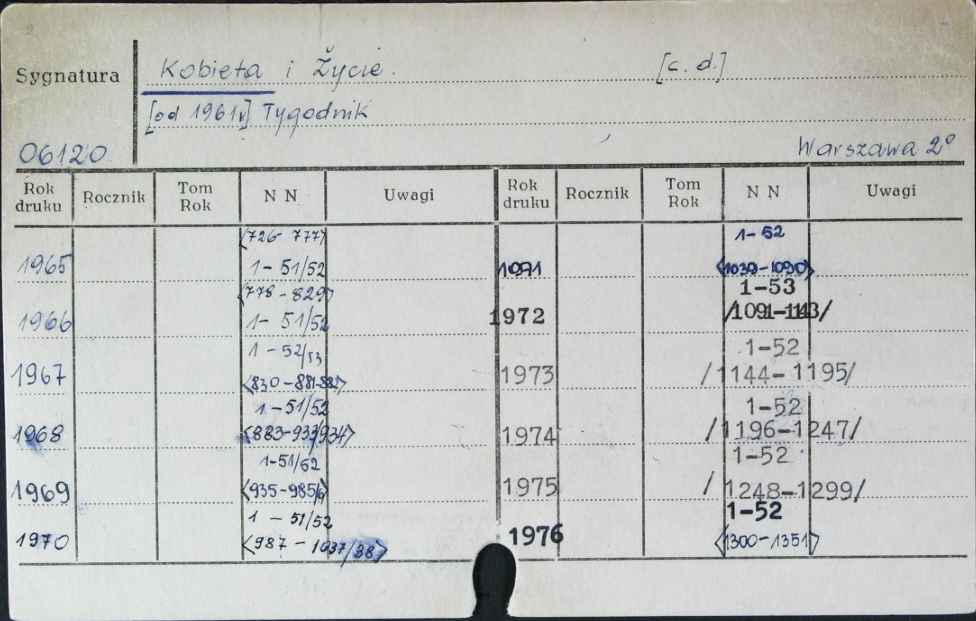 Sygnatura Kobieta i Życie. [c. d.]
[od 1961r] Tygodnik
06120 Warszawa 2°
Rok druku Rocznik Tom Rok N N Uwagi Rok druku Rocznik Tom Rok N N Uwagi
<726-777>
1965 1-51/52
<778-829>
1966 1-51/52
1-52/53
1967 <830-881-882>
1-51/52
1968 <883-933/934>
1-51/52
1969 <935-985/6>
1 - 51/52
1970 <987-1037/38>
1-52
1971 <1039-1090>
1-53
1972 /1091-1143/
1-52
1973 /1144-1195/
1-52
1974 /1196-1247/
1-52
1975 /1248-1299/
1-52
1976 <1300-1351>